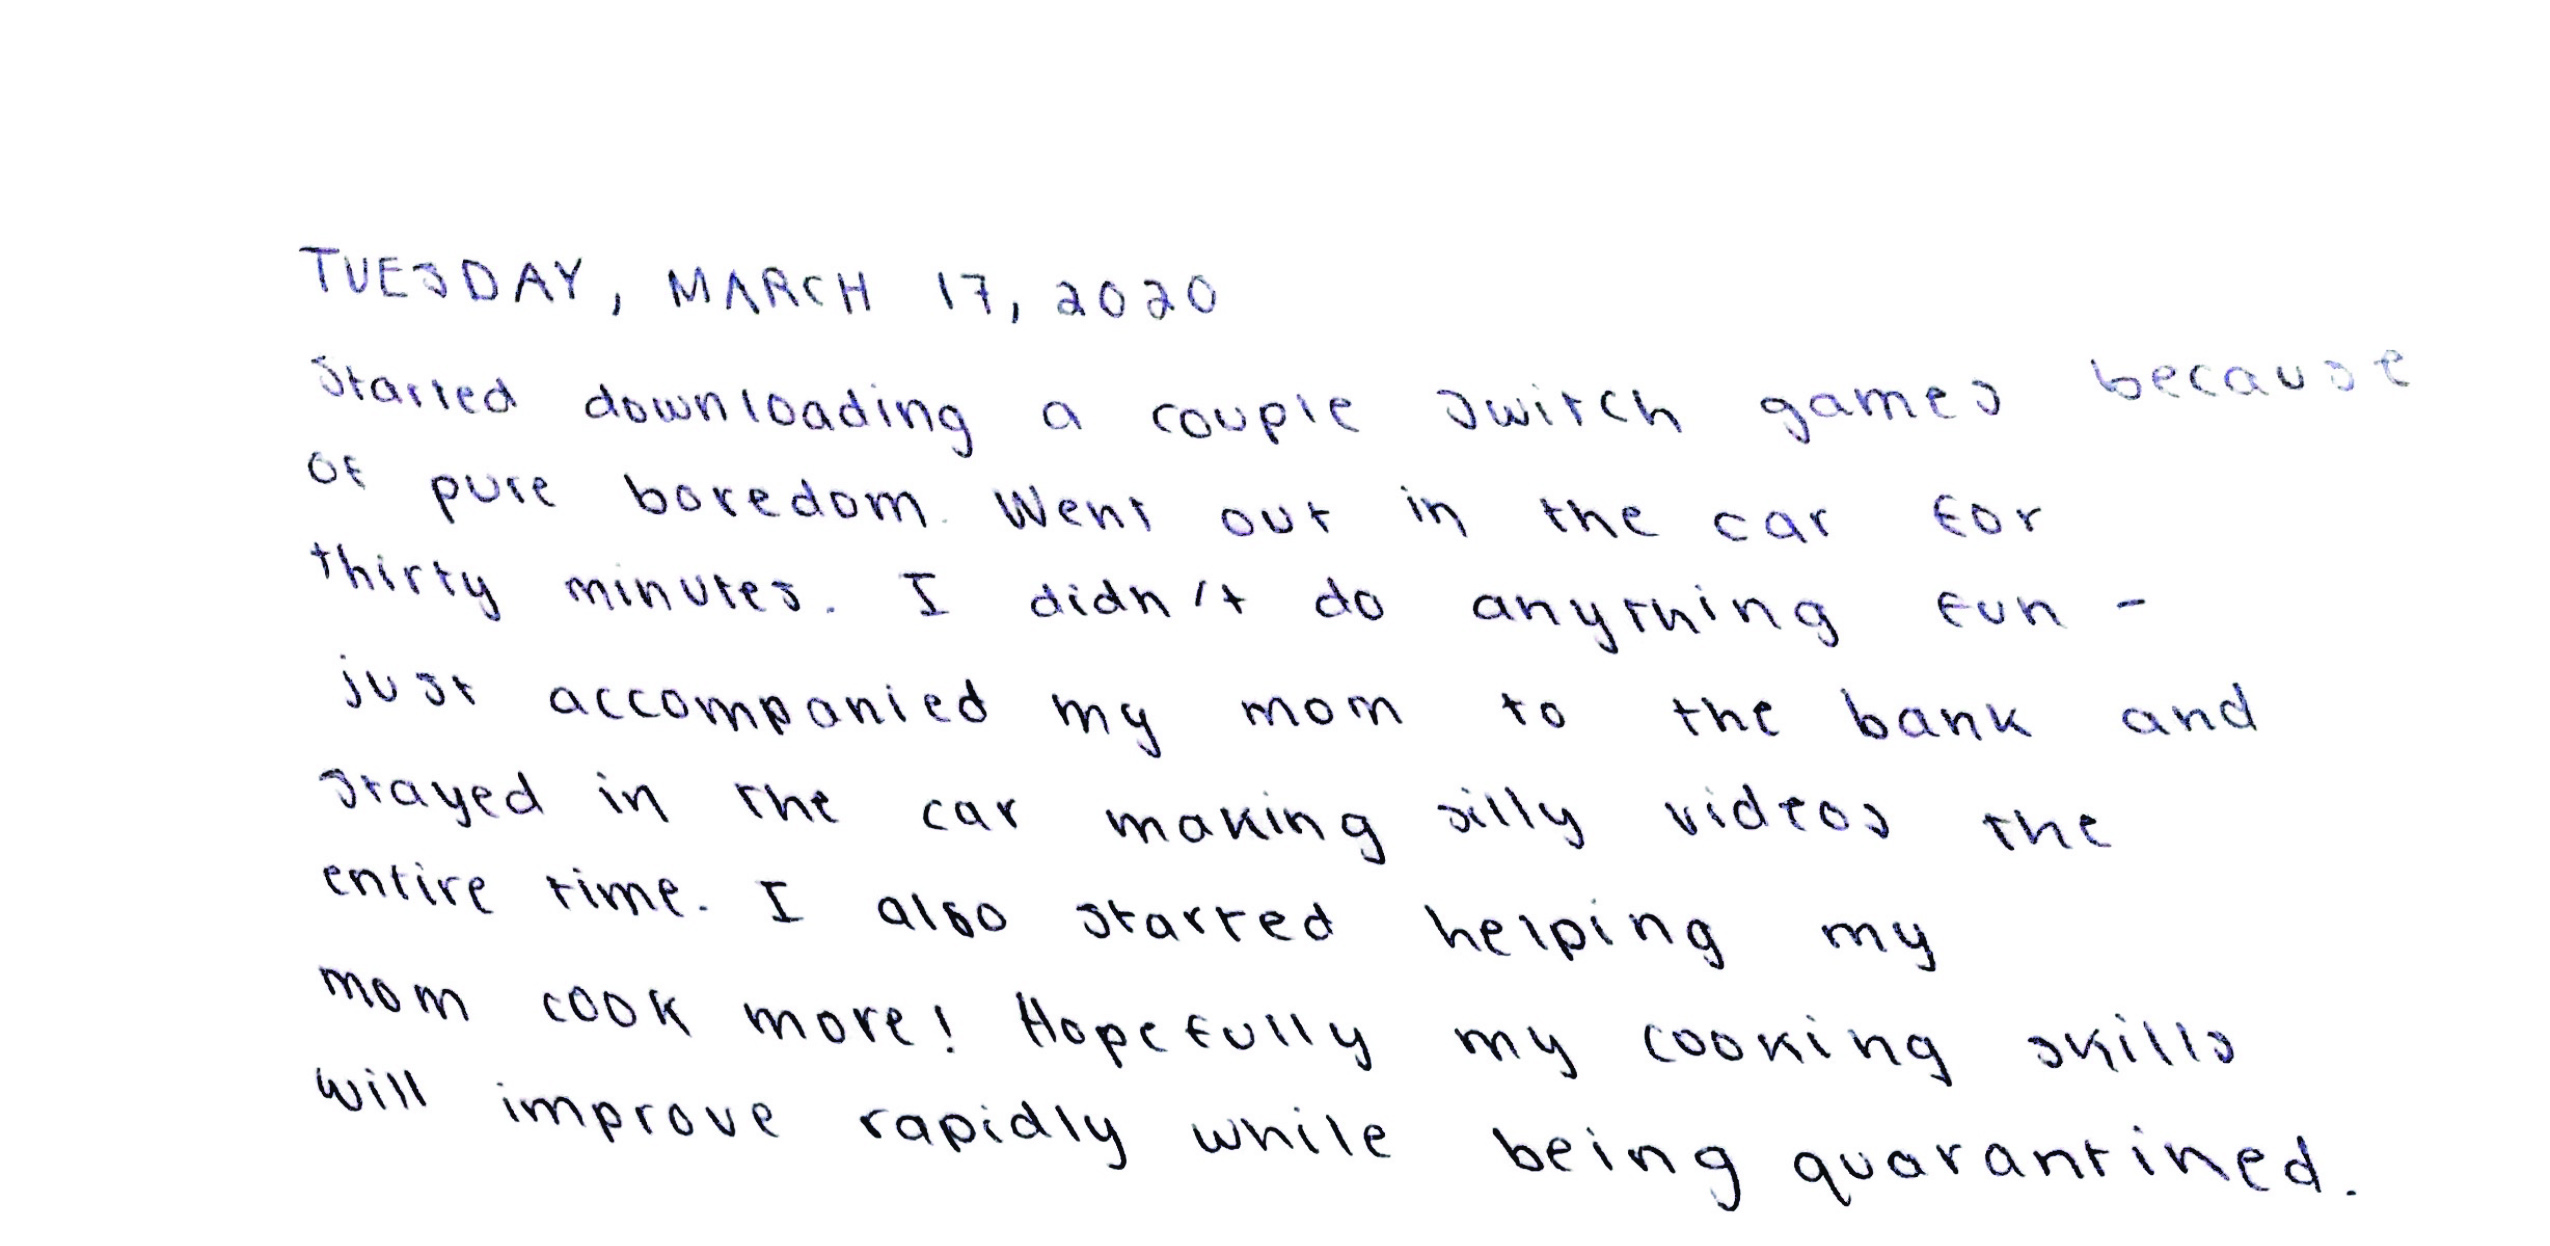 TUESDAY, MARCH 17, 2020
Started downloading a couple switch games because
of pure boredom. Went out in the car for
thirty minutes. I didn't do anything fun -
just accompanied my mom to the bank and
stayed in the car making silly videos the
entire time. I also started helping my
mom cook more! Hopefully my cooking skills
will improve rapidly while being quarantined.